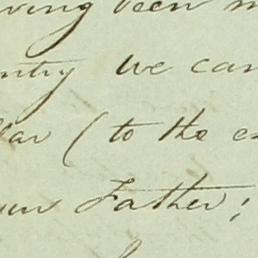 ving been m
ntry we can
lar (to the e
our Father;